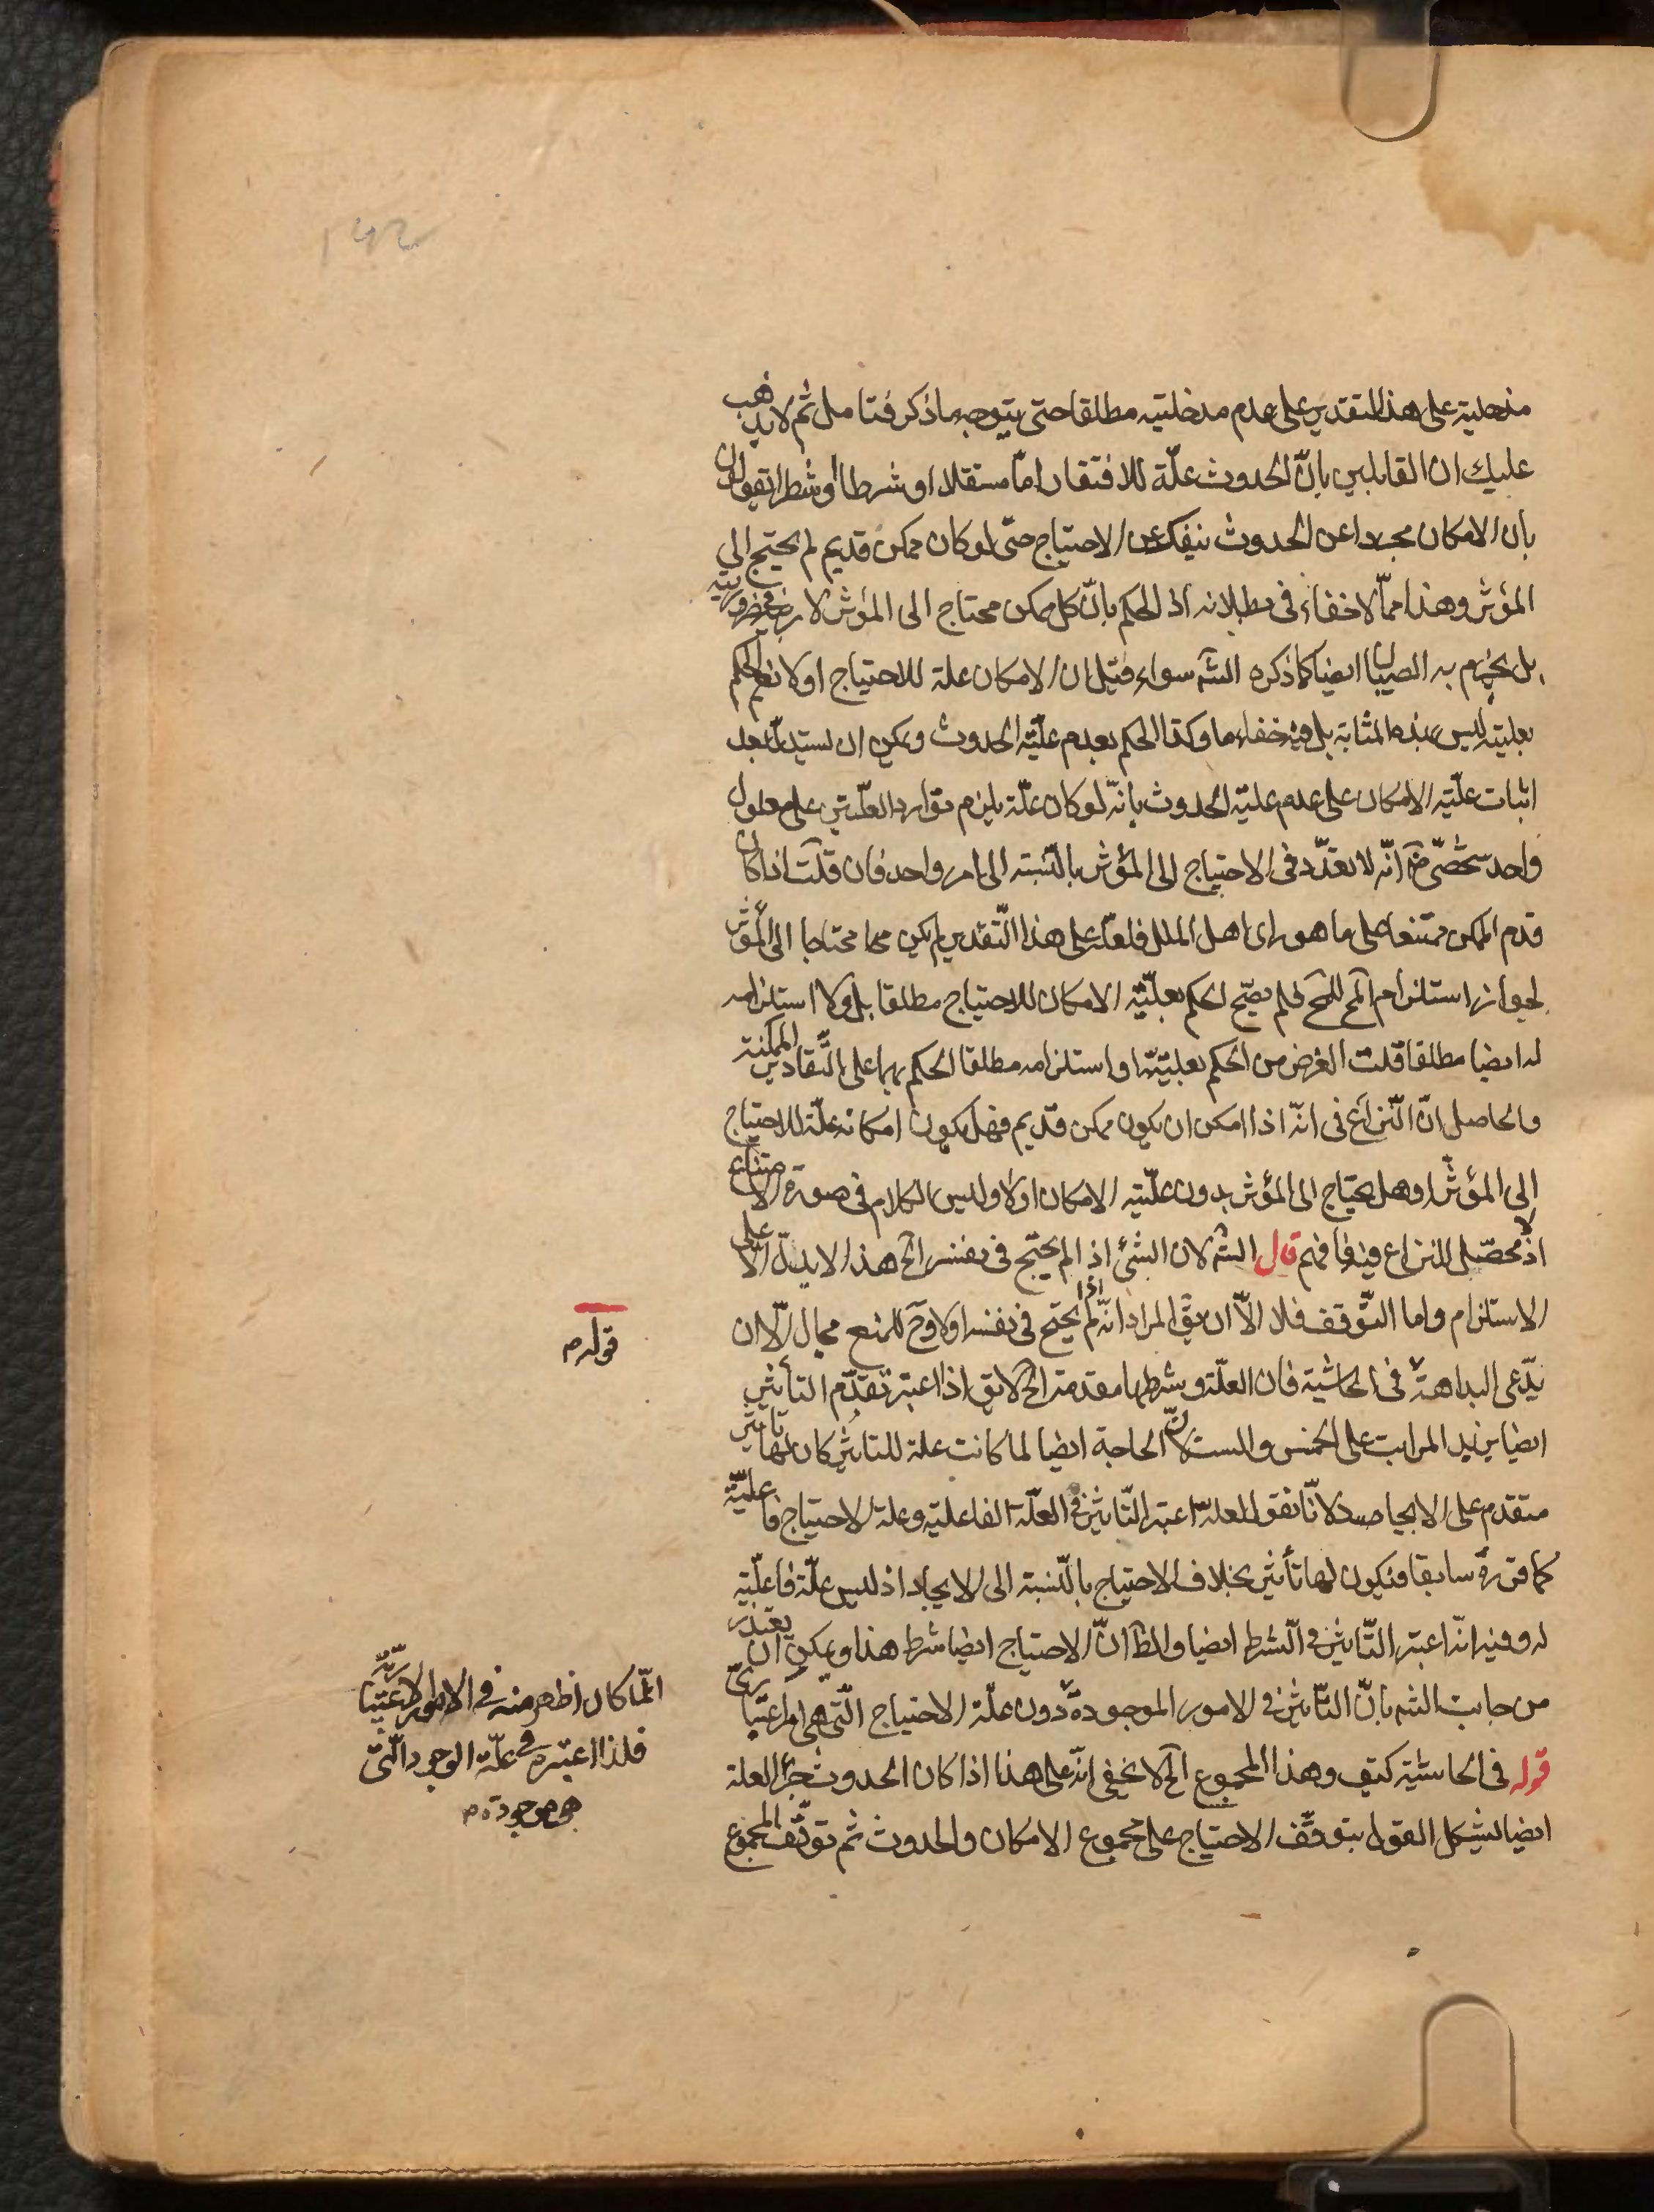 مدخلية على هذا التقدير على عدم مدخليته مطلقا حتى يتوجه ما ذكر فتامل ثم لا يذهب
عليك ان القايلين بانّ الحدوث علّة للافتقار امّا مستقلا او شرطا او شطرا يقولون
بان الامكان مجردا عن الحدوث ينفك عن الاحتياج حتى لو كان ممكن قديم لم يحتج الى
المؤثر وهذا ممّا لا خفاء فى بطلانه اذ الحكم بانّ كل ممكن محتاج الى المؤثر لا ريب فى ضروريته
بل يجزم به الصبيان ايضا كما ذكره الشّه سواء قيل ان الامكان علة للاحتياج او لا نعم الحكم
بعليته ليس بهذه المثابة بل فيه خفاء ما وكذا الحكم بعدم علّية الحدوث ويمكن ان يستدل بعد
اثبات علّية الامكان على عدم عليّة الحدوث بانّه لو كان علّة يلزم توارد العلّتين على معلول
واحد شخصّى انّه لا تعدّد فى الاحتياج الى المؤثر بالنّسبة الى امر واحد فان قلت اذا كان
قدم الممكن ممتنعا على ما هو راى اهل الملل فلعلّه على هذا التّقدير لم يكن محتاجا الى المؤثر
لجواز استلزام المح للمح فلم يصحّ الحكم بعليّة الامكان للاحتياج مطلقا بل ولا استلزامه
له ايضا مطلقا قلت الغرض من الحكم بعليّته او استلزامه مطلقا الحكم بهما على التّقادير الممكنة
والحاصل انّ النّزاع فى انّه اذا امكن ان يكون ممكن قديم فهل يكون امكانه علّة للاحتياج
الى المؤثر او هل يحتاج الى المؤثر بدون علّيّة الامكان او لا وليس الكلام فى صورة الامتناع
اذ لا محصّل للنزاع فيه فافهم قال الشّه لان الشئ اذا لم يحتج فى نفسه الخ هذا لا يدلّ الّا على
الاستلزام واما التّوقف فلا الّا ان يقّ المراد انّه اذا لم يحتج فى نفسه اولا وح للمنع مجال الّا ان
يدّعى البداهة فى الحاشية فان العلّة وشرطها مقدمة الخ لا يق اذا اعتبر تقدّم التأثير
ايضا يزيد المراتب على الخمس والست لانّ الحاجة ايضا لما كانت علة للتاثير كان لها تاثير
متقدم على الايجاد لانّا نقول لعلّه اعتبر التّاثير فى العلّة الفاعلية وعلة الاحتياج فاعليّة
كما قرّره سابقا فيكون لها تأثير بخلاف الاحتياج بالنّسبة الى الايجاد اذ ليس علّة فاعليّة
له وفيه انّه اعتبر التّاثير فى الشرط ايضا والظّ انّ الاحتياج ايضا شرط هذا ويمكن ان يعتذر
من جانب الشّه بانّ التّاثير فى الامور الموجودة دون علّة الاحتياج الّتى هى امر اعتبارىّ
قوله فى الحاشية كيف وهذا المجموع الخ لا يخفى انّه على هذا اذا كان الحدوث جزء العلة
ايضا يشكل القول بتوقّف الاحتياج على مجموع الامكان والحدوث ثم توقّف المجموع
قوله م
انّما كان اظهر منه فى الامور الاعتباريّة
فلذا اعتبره فى علّة الوجود الّتى
هى موجودة م